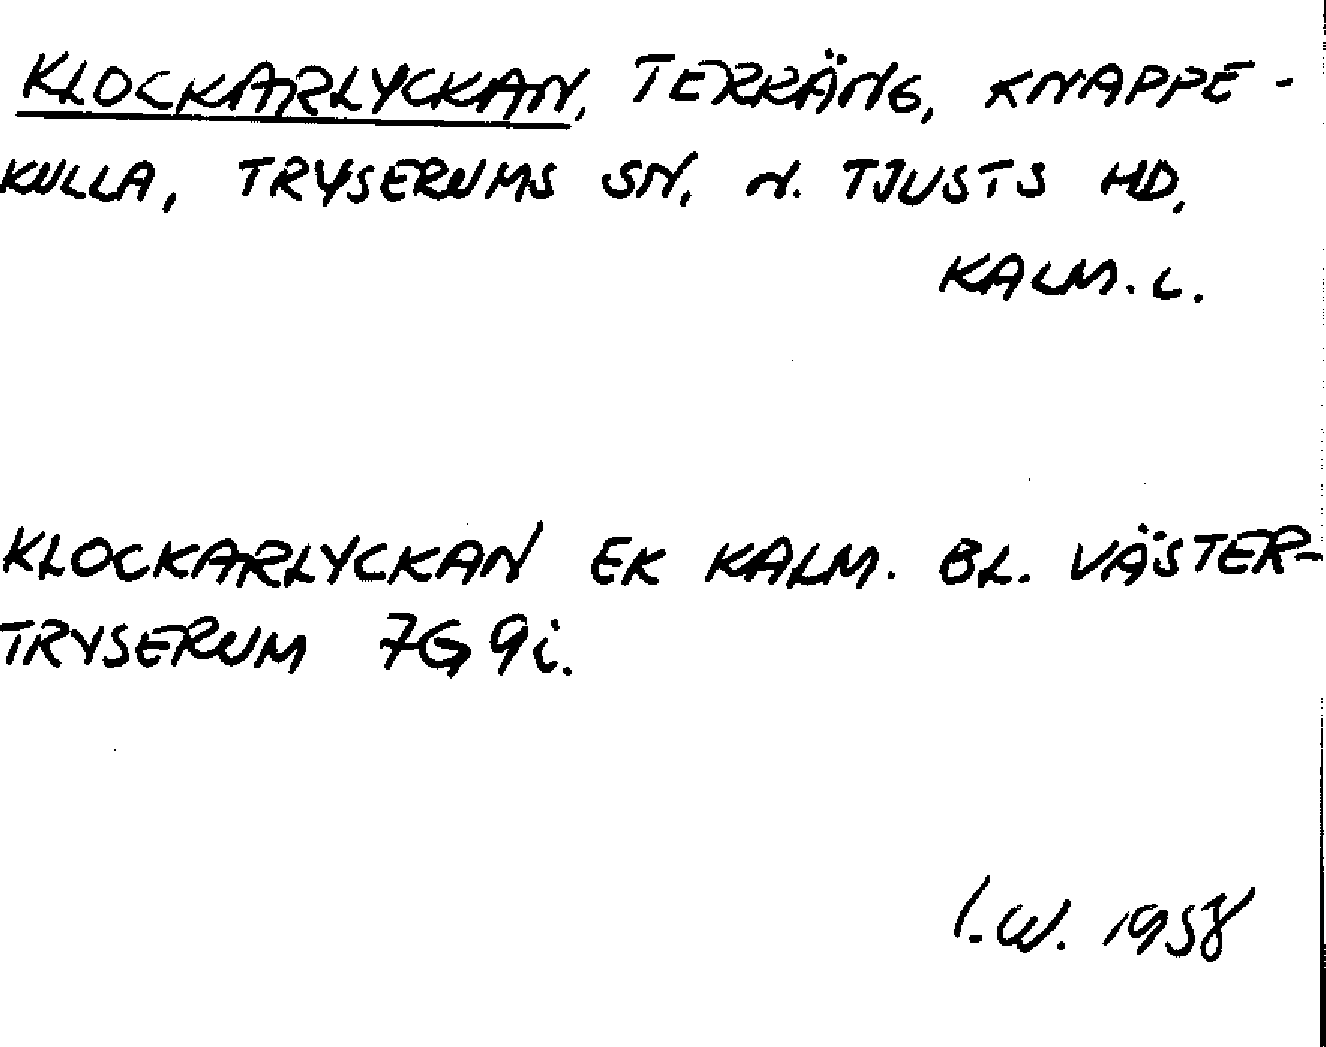 KLOCKARLYCKAN, TERRÄNG, KNAPPE-
KULLA, TRYSERUMS SN, N. TJUSTS HD,
KALM. L.
KLOCKARLYCKAN EK KALM. BL. VÄSTER-
TRYSERUM 7G 9i.
I.W. 1958